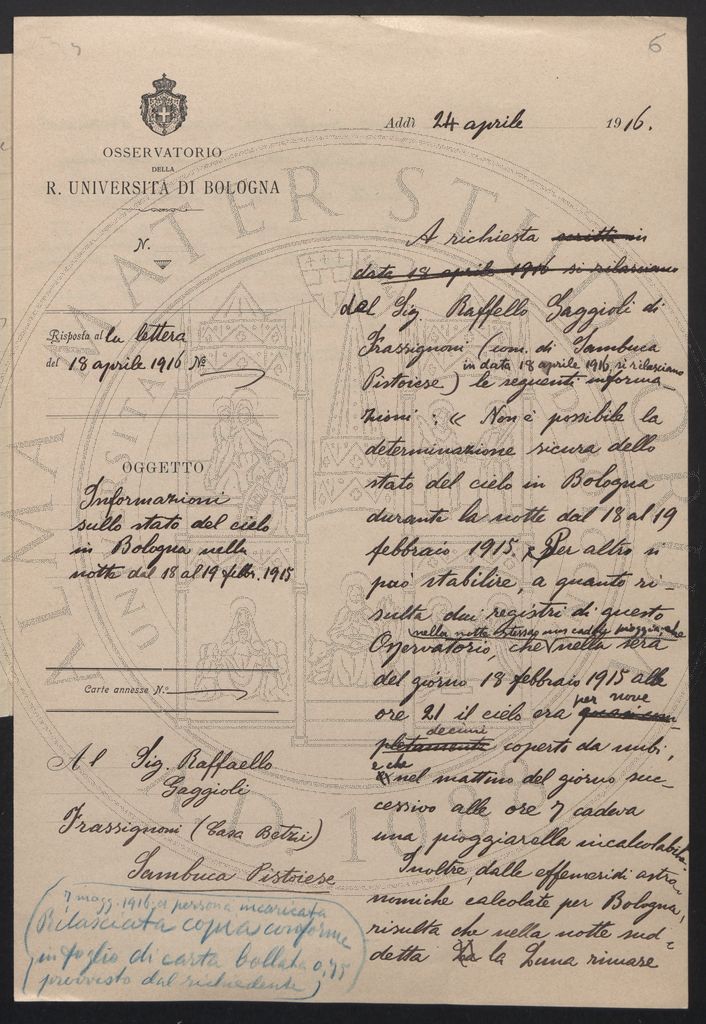 6
OSSERVATORIO
DELLA
R. UNIVERSITÀ DI BOLOGNA
N.
Risposta alla lettera
del 18 aprile 1916 N.o
OGGETTO
Informazioni
sullo stato del cielo
in Bologna nella
notte dal 18 al 19 febbr. 1915
Carte annesse N.o
Al Sig. Raffaello
Gaggioli
Frassignoni (Casa Betzii)
Sambuca Pistoiese
7 magg. 1916, a persona incaricata
Rilasciata copia conforme
in foglio di carta bollata 0,75
provvisto dal richiedente
Addì 24 aprile 1916.
A richiesta scritta in
data 18 aprile 1916 si rilasciano
del Sig. Raffello Gaggioli di
Frassignoni (com. di Sambuca
in data 18 aprile 1916, si rilasciano
Pistoiese) le seguenti informa-
zioni: « Non è possibile la
determinazione sicura dello
stato del cielo in Bologna
durante la notte dal 18 al 19
febbraio 1915. Per altro si
può stabilire, a quanto ri-
sulta dai registri di questo
nella notte stessa non cadde pioggia, che
Osservatorio, che nella sera
del giorno 18 febbraio 1915 alle
per nove
ore 21 il cielo era quasi com-
decimi
pletamente coperto da nubi,
e che
nel mattino del giorno suc-
cessivo alle ore 7 cadeva
una pioggiarella incalcolabile.
Inoltre, dalle effemeridi astro-
nomiche calcolate per Bologna,
risulta che nella notte sud-
detta la Luna rimase
ALMA MATER STUDIORUM
A.D. 1088